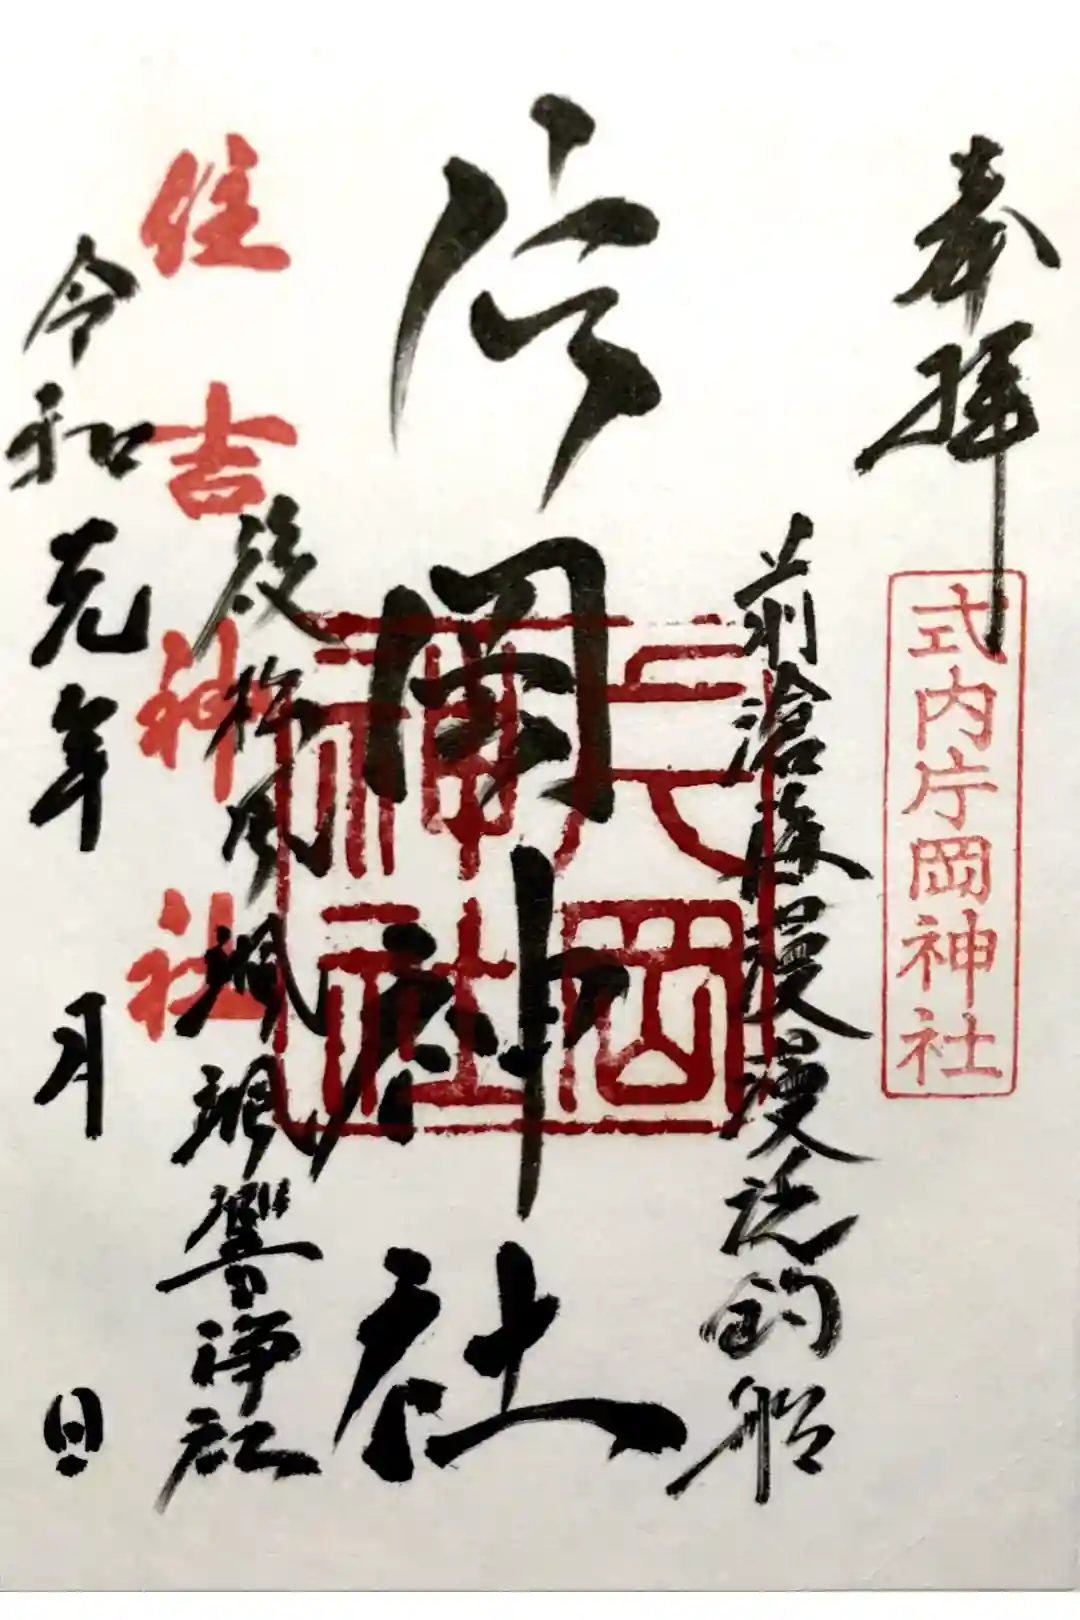 奉拝
式内庁岡神社
前滄海漫漫釣船
庁岡神社
庁岡神社
後松風颯颯響浄社
住吉神社
令和元年 月 日